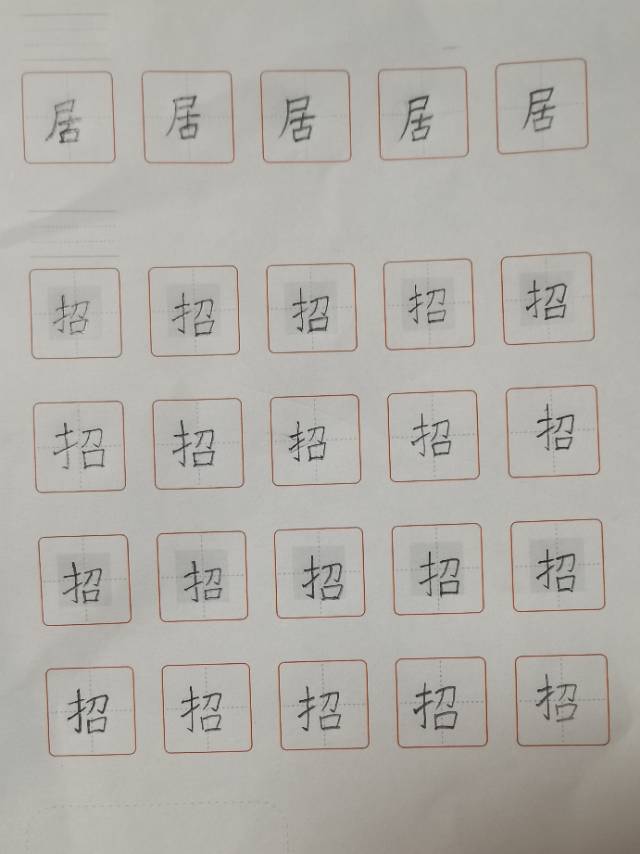 居 居 居 居 居
招 招 招 招 招
招 招 招 招 招
招 招 招 招 招
招 招 招 招 招